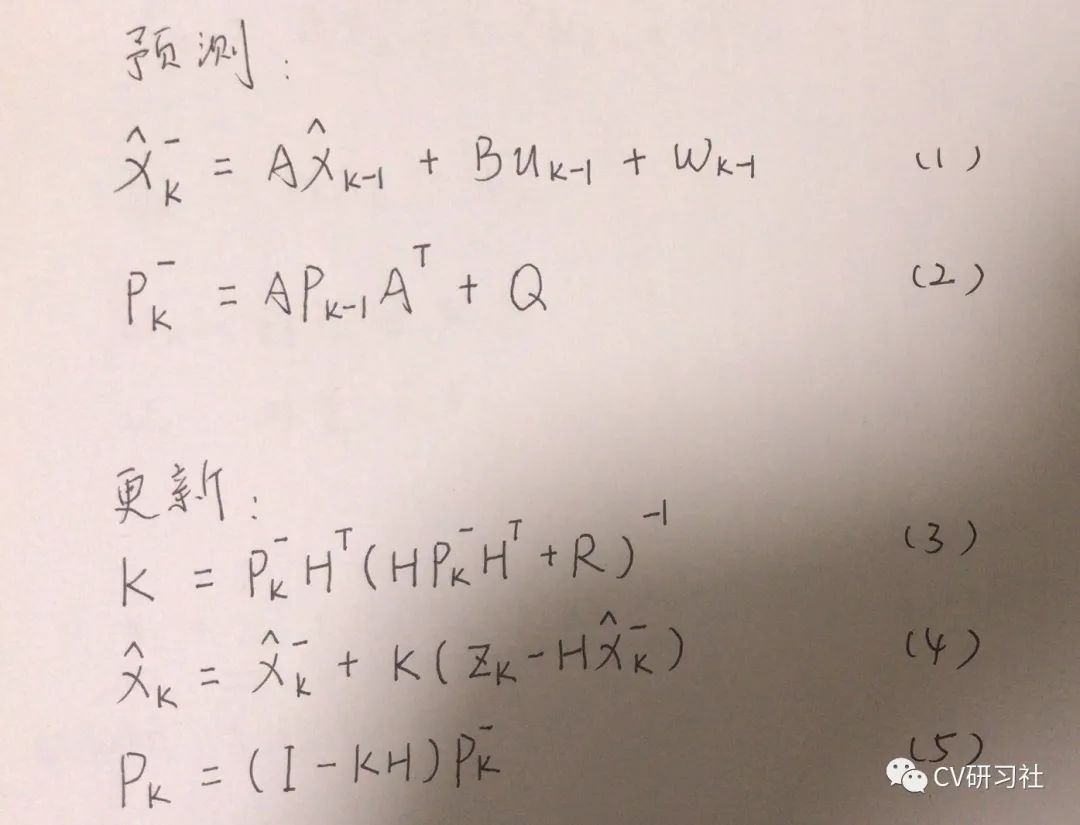 预测:
x̂ₖ⁻ = Ax̂ₖ₋₁ + Buₖ₋₁ + wₖ₋₁ (1)
Pₖ⁻ = APₖ₋₁Aᵀ + Q (2)
更新:
K = Pₖ⁻Hᵀ(HPₖ⁻Hᵀ + R)⁻¹ (3)
x̂ₖ = x̂ₖ⁻ + K(zₖ - Hx̂ₖ⁻) (4)
Pₖ = (I - KH)Pₖ⁻ (5)
CV研习社